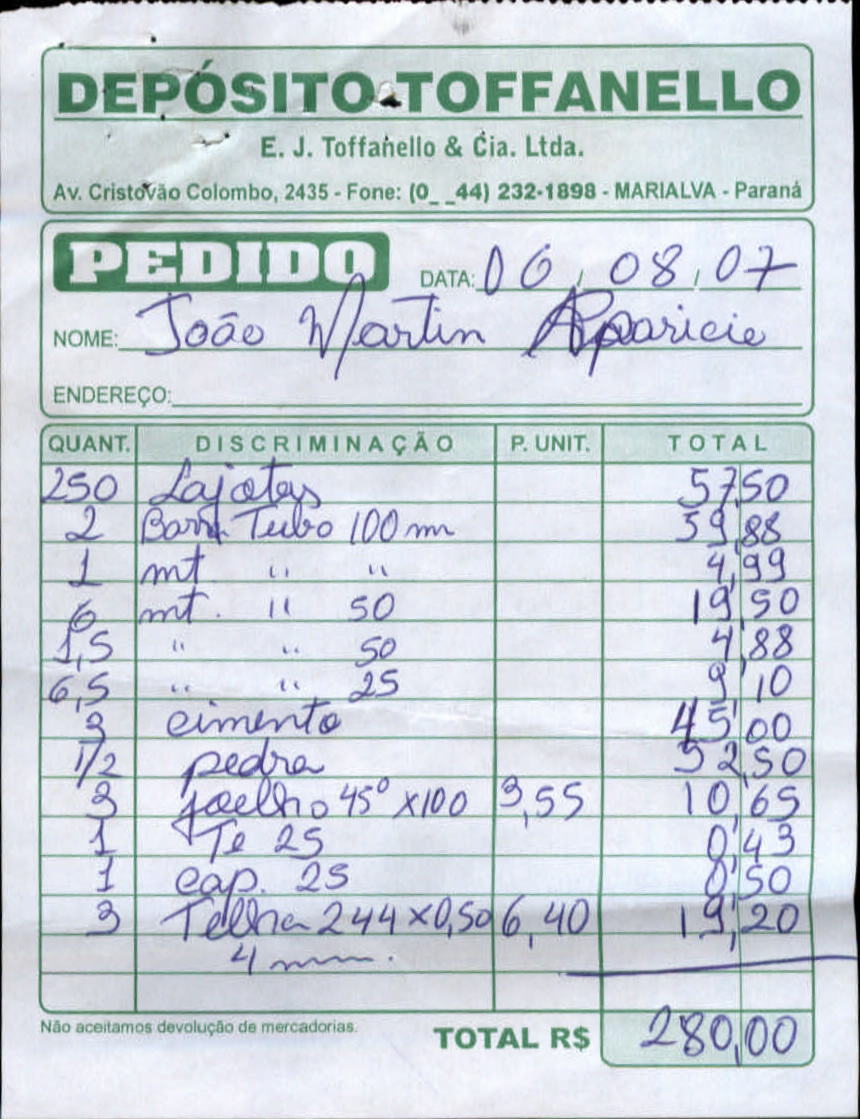 DEPÓSITO TOFFANELLO
E. J. Toffanello & Cia. Ltda.
Av. Cristovão Colombo, 2435 - Fone: (0_ _44) 232-1898 - MARIALVA - Paraná
PEDIDO DATA: 06 / 08 / 07
NOME: João Martin Aparicio
ENDEREÇO:
QUANT. DISCRIMINAÇÃO P. UNIT. TOTAL
250 Lajotas 57,50
2 Barra Tubo 100 mm 59,88
1 mt. " " 4,99
6 mt. " 50 19,50
1,5 " " 50 4,88
6,5 " " 25 9,10
3 cimento 45,00
1/2 pedra 52,50
3 joelho 45° x100 3,55 10,65
1 Te 25 0,43
1 cap. 25 0,50
3 Telha 244 x 0,50 6,40 19,20
4 mm.
Não aceitamos devolução de mercadorias.
TOTAL R$ 280,00